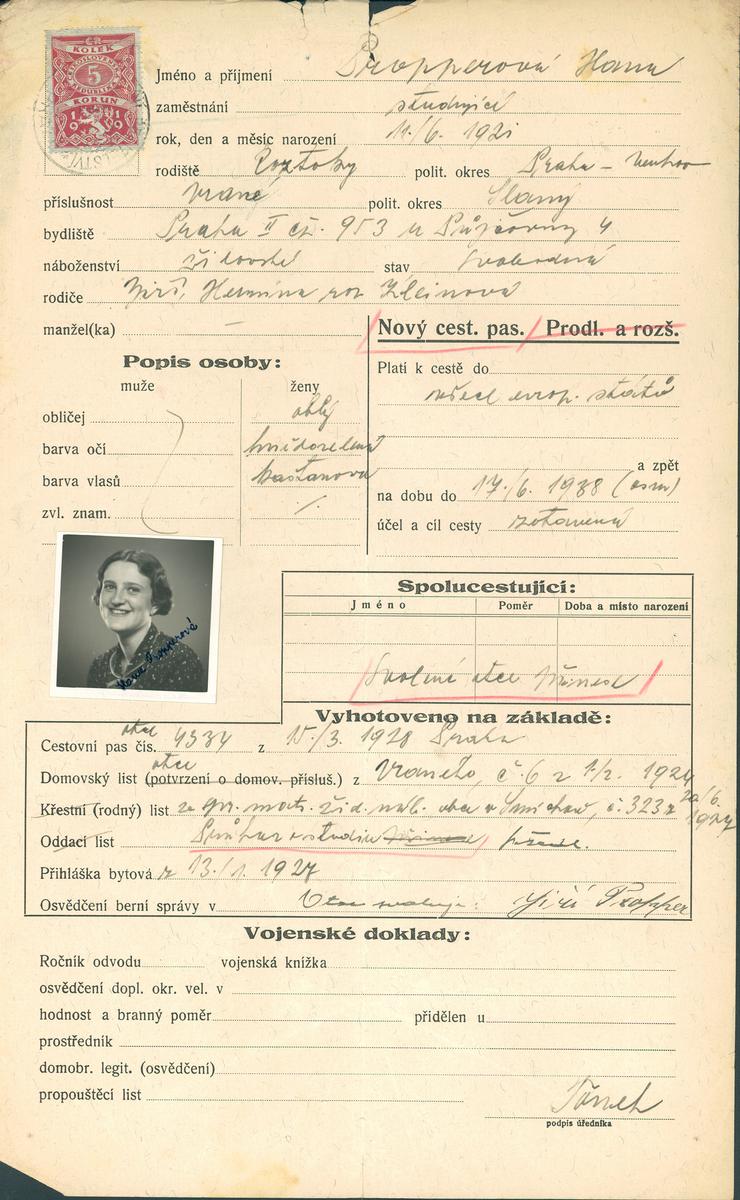 ČR
KOLEK
5
KORUN
Jméno a příjmení Propperová Hana
zaměstnání studující
rok, den a měsíc narození 11/6. 1921
rodiště Roztoky polit. okres Praha - venkov
příslušnost Vrané polit. okres Slaný
bydliště Praha II čp. 953 u Půjčovny 4
náboženství židovské stav svobodná
rodiče Jiří, Hermína roz. Kleinová
manžel(ka) —
Nový cest. pas. Prodl. a rozš.
Popis osoby:
Platí k cestě do
muže ženy
všech evrop. států
obličej oblý
barva očí hnědozelená
barva vlasů kaštanová
a zpět
zvl. znam. /.
na dobu do 17./6. 1938 (osm)
účel a cíl cesty zotavená
Hana Propperová
Spolucestující:
Jméno Poměr Doba a místo narození
Svolení otce
Vyhotoveno na základě:
otce
Cestovní pas čís. 4334 z 15/3. 1928 Praha
otce
Domovský list (potvrzení o domov. přísluš.) z Vraného, č. 6 z 1/2. 1924
Křestní (rodný) list ze gr. mat. žid. nab. obce v Smíchov, č. 323 z 20/6. 1927
Oddací list Průkaz o studiu
Přihláška bytová z 13./1. 1927
Osvědčení berní správy v Otec svoluje: Jiří Propper
Vojenské doklady:
Ročník odvodu vojenská knížka
osvědčení dopl. okr. vel. v
hodnost a branný poměr přidělen u
prostředník
domobr. legit. (osvědčení)
propouštěcí list
podpis úředníka